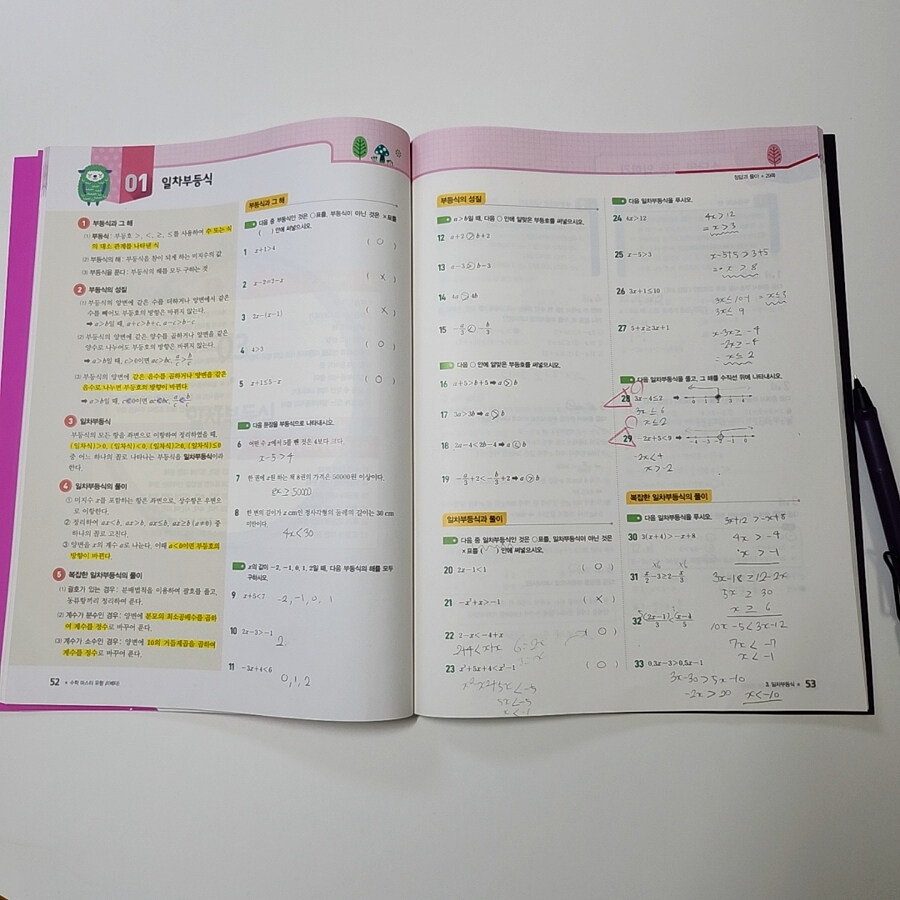 01 일차부등식
1 부등식과 그 해
(1) 부등식: 부등호 >, <, ≥, ≤를 사용하여 수 또는 식
의 대소 관계를 나타낸 식
(2) 부등식의 해: 부등식을 참이 되게 하는 미지수의 값
(3) 부등식을 푼다: 부등식의 해를 모두 구하는 것
2 부등식의 성질
(1) 부등식의 양변에 같은 수를 더하거나 양변에서 같은
수를 빼어도 부등호의 방향은 바뀌지 않는다.
➡ a>b일 때, a+c>b+c, a-c>b-c
(2) 부등식의 양변에 같은 양수를 곱하거나 양변을 같은
양수로 나누어도 부등호의 방향은 바뀌지 않는다.
➡ a>b일 때, c>0이면 ac>bc, a/c>b/c
(3) 부등식의 양변에 같은 음수를 곱하거나 양변을 같은
음수로 나누면 부등호의 방향이 바뀐다.
➡ a>b일 때, c<0이면 ac<bc, a/c<b/c
3 일차부등식
부등식의 모든 항을 좌변으로 이항하여 정리하였을 때,
(일차식)>0, (일차식)<0, (일차식)≥0, (일차식)≤0
중 어느 하나의 꼴로 나타나는 부등식을 일차부등식이라
한다.
4 일차부등식의 풀이
① 미지수 x를 포함하는 항은 좌변으로, 상수항은 우변으
로 이항한다.
② 정리하여 ax<b, ax>b, ax≤b, ax≥b (a≠0) 중
하나의 꼴로 고친다.
③ 양변을 x의 계수 a로 나눈다. 이때 a<0이면 부등호의
방향이 바뀐다.
5 복잡한 일차부등식의 풀이
(1) 괄호가 있는 경우: 분배법칙을 이용하여 괄호를 풀고,
동류항끼리 정리하여 푼다.
(2) 계수가 분수인 경우: 양변에 분모의 최소공배수를 곱하
여 계수를 정수로 바꾸어 푼다.
(3) 계수가 소수인 경우: 양변에 10의 거듭제곱을 곱하여
계수를 정수로 바꾸어 푼다.
52
부등식과 그 해
다음 중 부등식인 것은 ○표를, 부등식이 아닌 것은 ×표를
( ) 안에 써넣으시오.
1 x+1>4 ( O )
2 x-7=7-x ( X )
3 2x-(x-1) ( X )
4 4>3 ( O )
5 x+1≤5-x ( O )
다음 문장을 부등식으로 나타내시오.
6 어떤 수 x에서 5를 뺀 것은 4보다 크다.
x-5>4
7 한 권에 x원 하는 책 8권의 가격은 50000원 이상이다.
8x≥5000
8 한 변의 길이가 x cm인 정사각형의 둘레의 길이는 30 cm
미만이다.
4x<30
x의 값이 -2, -1, 0, 1, 2일 때, 다음 부등식의 해를 모두
구하시오.
9 x+5<7 -2, -1, 0, 1
10 2x-3>-1 2
11 -3x+4<6 0, 1, 2
정답과 풀이
부등식의 성질
a>b일 때, 다음 ○ 안에 알맞은 부등호를 써넣으시오.
12 a+2 > b+2
13 a-3 > b-3
14 4a > 4b
15 -a/3 < -b/3
다음 ○ 안에 알맞은 부등호를 써넣으시오.
16 a+5>b+5 ➡ a > b
17 3a>3b ➡ a > b
18 3a-4<3b-4 ➡ a < b
19 -a/3+2<-b/3+2 ➡ a > b
일차부등식과 풀이
다음 중 일차부등식인 것은 ○표를, 일차부등식이 아닌 것은
×표를 ( ) 안에 써넣으시오.
20 2x-1<1 ( O )
21 -x²+x>-1 ( X )
22 2-x<-4+x ( O )
23 x²+5x+4<x²-1 ( O )
다음 일차부등식을 푸시오.
24 4x>12 4x>12
= x>3
25 x-5>3 x-5+5>3+5
= x > 8
26 3x+1≤10 3x≤10-1 = x≤3
3x≤ 9
27 5+x≥2x+1
-2x≥-4
= x≤2
다음 일차부등식을 풀고, 그 해를 수직선 위에 나타내시오.
28 3x-4≤2 ➡
3x≤6
x≤2
29 -2x+5<9 ➡
-2x<4
x>-2
복잡한 일차부등식의 풀이
다음 일차부등식을 푸시오. 3x+12>-x+8
30 3(x+4)>-x+8 4x > -4
x > -1
31 3x-18≥12-2x
5x ≥ 30
x ≥ 6
32 10x-5<3x-12
7x < -7
x < -1
33 0.3x-3>0.5x-1
3x-30>5x-10
-2x>20 x<-10
2. 일차부등식 53